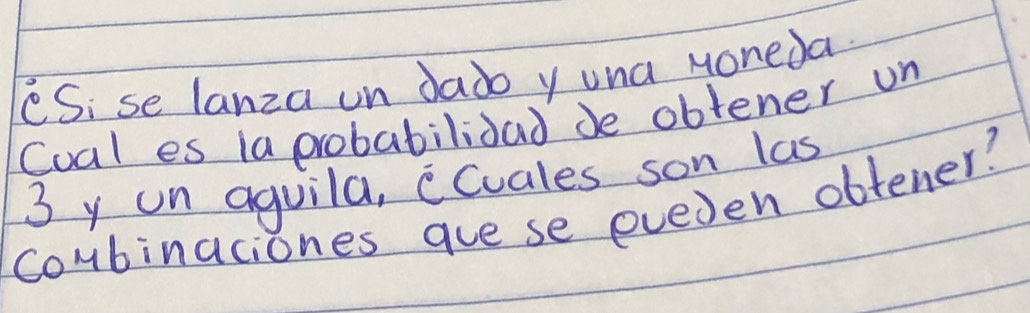 ¿Si se lanza un dado y una moneda.
Cual es la probabilidad de obtener un
3 y un aguila, ¿Cuales son las
combinaciones que se pueden obtener?